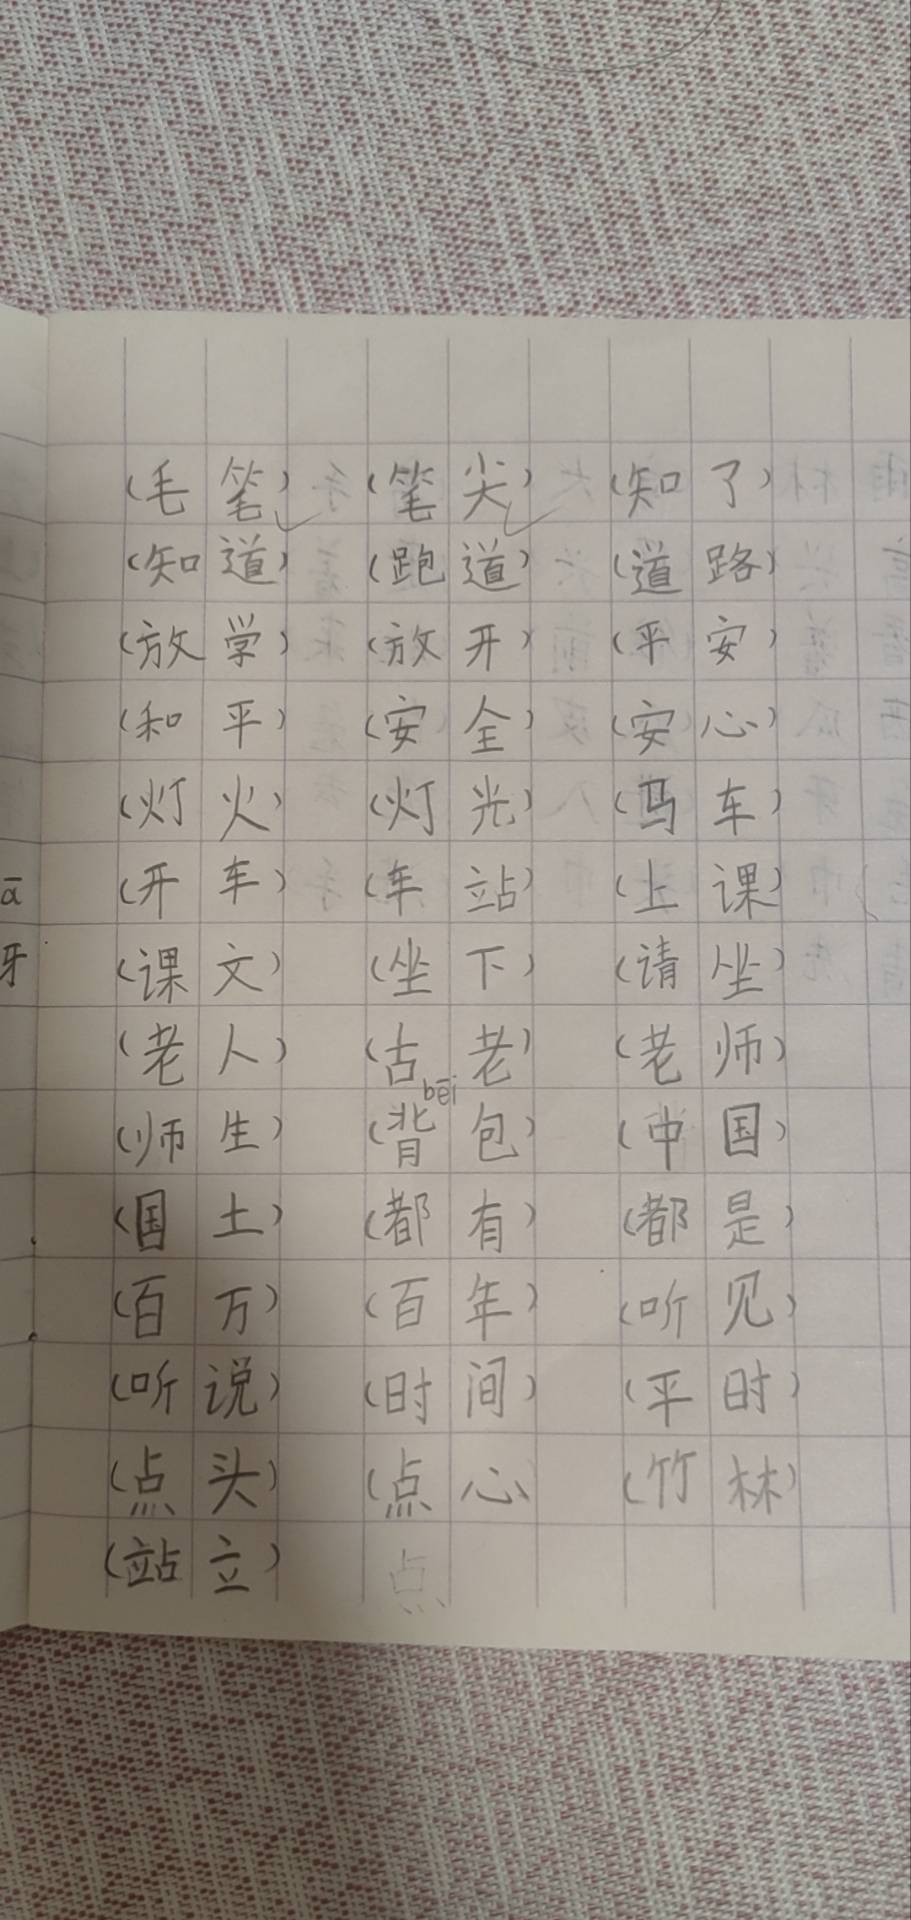 (毛笔) (笔尖) (知了)
(知道) (跑道) (道路)
(放学) (放开) (平安)
(和平) (安全) (安心)
(灯火) (灯光) (马车)
ā
(开车) (车站) (上课)
牙
(课文) (坐下) (请坐)
(老人) (古老) (老师)
bēi
(师生) (背包) (中国)
(国土) (都有) (都是)
(百万) (百年) (听见)
(听说) (时间) (平时)
(点头) (点心) (竹林)
(站立) 点